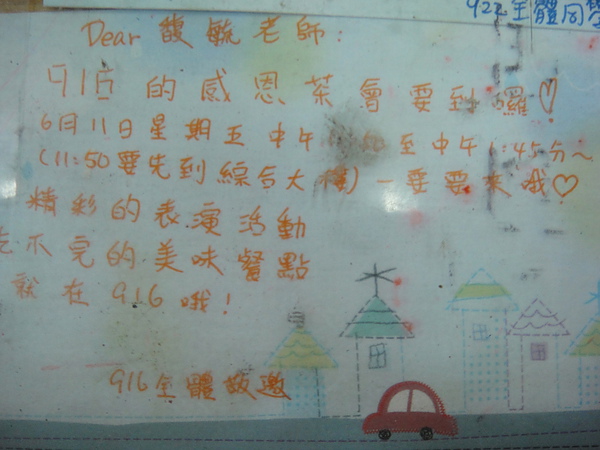 922全體同學
Dear 馥毓老師:
916的感恩茶會要到囉!
6月11日星期五中午 至中午1:45分~
(11:50要先到綜合大樓)一定要來哦♡
精彩的表演活動
吃不完的美味餐點
就在916哦!
916全體敬邀